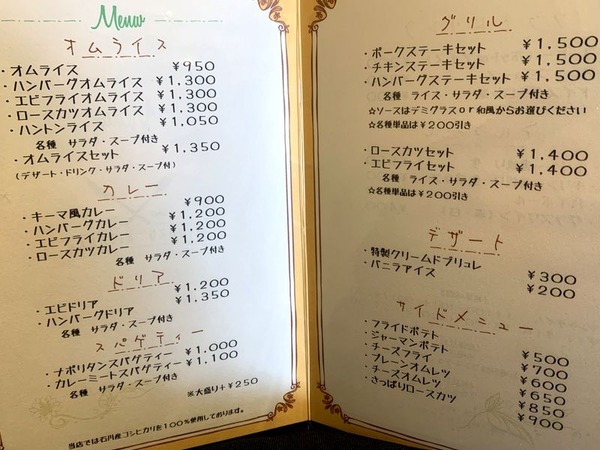 Menu
オムライス
・オムライス ￥950
・ハンバーグオムライス ￥1,300
・エビフライオムライス ￥1,300
・ロースカツオムライス ￥1,300
・ハントンライス ￥1,050
各種 サラダ・スープ付き
・オムライスセット ￥1,350
(デザート・ドリンク・サラダ・スープ付)
カレー
・キーマ風カレー ￥900
・ハンバーグカレー ￥1,200
・エビフライカレー ￥1,200
・ロースカツカレー ￥1,200
各種 サラダ・スープ付き
ドリア
・エビドリア ￥1,200
・ハンバーグドリア ￥1,350
各種 サラダ・スープ付き
スパゲティー
・ナポリタンスパゲティー ￥1,000
・カレーミートスパゲティー ￥1,100
各種 サラダ・スープ付き
※大盛り+￥250
当店では石川産コシヒカリを100%使用しております。
グリル
・ポークステーキセット ￥1,500
・チキンステーキセット ￥1,500
・ハンバーグステーキセット ￥1,500
各種 ライス・サラダ・スープ付き
☆ソースはデミグラスor和風からお選びください
☆各種単品は￥200引き
・ロースカツセット ￥1,400
・エビフライセット ￥1,400
各種 ライス・サラダ・スープ付き
☆各種単品は￥200引き
デザート
・特製クリームドブリュレ ￥300
・バニラアイス ￥200
サイドメニュー
・フライドポテト ￥500
・ジャーマンポテト ￥700
・チーズフライ ￥600
・プレーンオムレツ ￥650
・チーズオムレツ ￥850
・さっぱりロースカツ ￥900